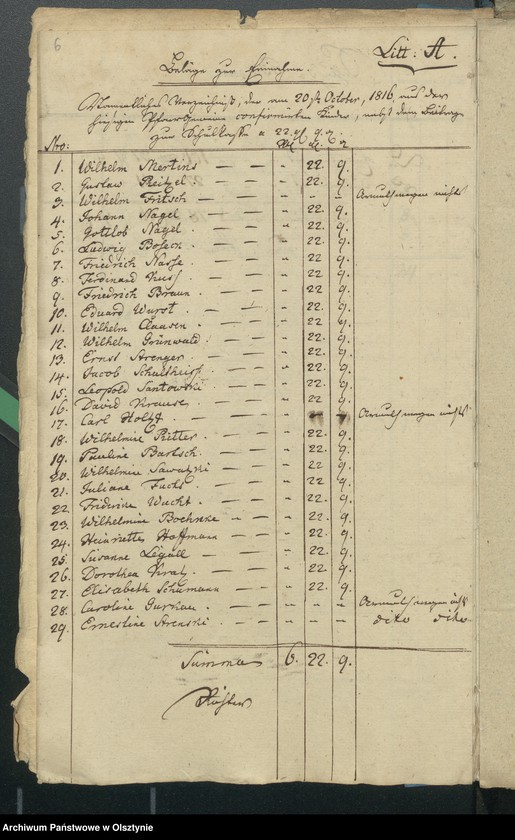 6
Litt: A.
Beläge zur Einnahme.
Namentliches Verzeichniß, der am 20 ten October, 1816, aus der
hiesigen Pfarr Gemeine confirmirten Kinder, nebst dem Beitrage
zur Schulkasse a 22. gl 9. d.
Nro:
1. Wilhelm Mertins — — " 22. 9.
2. Gustav Reitzel. — — " 22. 9.
3. Wilhelm Fritsch — — " " " Armuthswegen nichts
4. Johann Nagel — — " 22. 9.
5. Gottlob Nagel. — — " 22. 9.
6. Ludwig — — " 22. 9.
7. Friedrich Nasse. — — " 22. 9.
8. Ferdinand — — " 22. 9.
9. Friedrich Braun. — — " 22. 9.
10. Eduard — — " 22. 9.
11. Wilhelm Claassen. — — " 22. 9.
12. Wilhelm Grunwald. — — " 22. 9.
13. Ernst Arenger — — " 22. 9.
14. Jacob Schultheiss. — — " 22. 9.
15. Leopold Santowski. — — " 22. 9.
16. David Krause — — " 22. 9.
17. Carl — — " " " Armuthswegen nichts
18. Wilhelmine Ritter. — — " 22. 9.
19. Pauline Bartsch. — — " 22. 9.
20. Wilhelmine Sawatzki — — " 22. 9.
21. Juliane Fuchs. — — " 22. 9.
22. Friderike Wucht. — — " 22. 9.
23. Wilhelmine Boehnke — — " 22. 9.
24. Henriette Hoffmann — — " 22. 9.
25. Susanne — — " 22. 9.
26. Dorothea — — " 22. 9.
27. Elisabeth Schumann — — " 22. 9.
28. Caroline — — " " " Armuthswegen nichts
29. Ernestine Arenski. — — " " " dito dito
Summa 6. 22. 9.
Archiwum Państwowe w Olsztynie